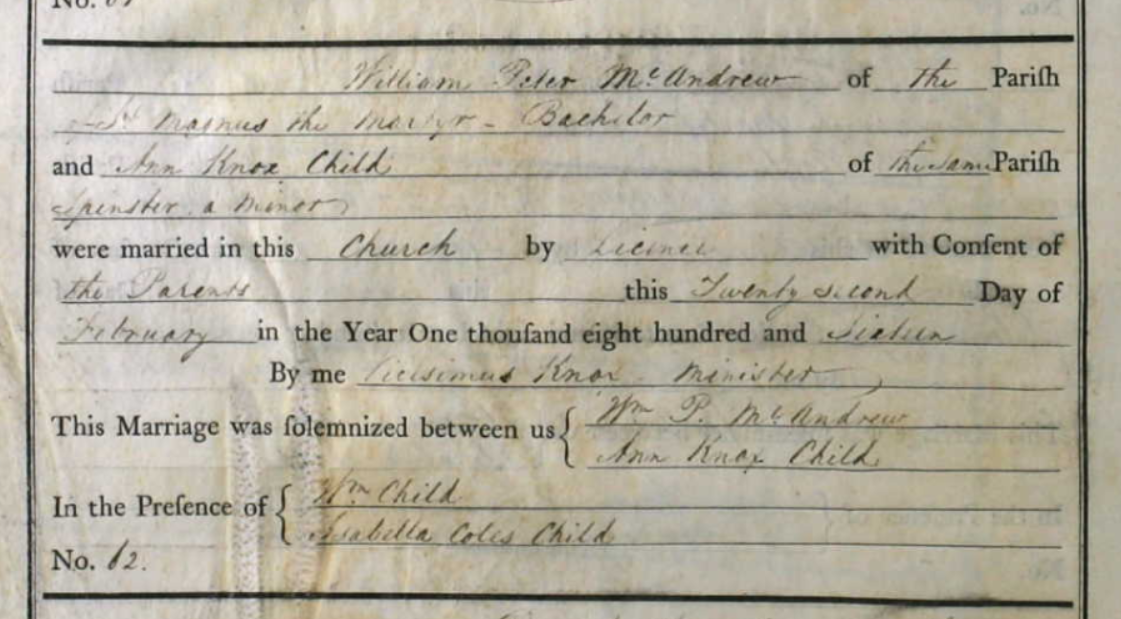 William Peter McAndrew of the Pariſh
of St Magnus the Martyr - Bachelor
and Ann Knox Child of the same Pariſh
Spinster a Minor
were married in this Church by Licence with Conſent of
the Parents this Twenty second Day of
February in the Year One thouſand eight hundred and Sixteen
By me Vicesimus Knox Minister
This Marriage was ſolemnized between us { Wm P. McAndrew
Ann Knox Child
In the Preſence of { Wm Child
Isabella Coles Child
No. 62.